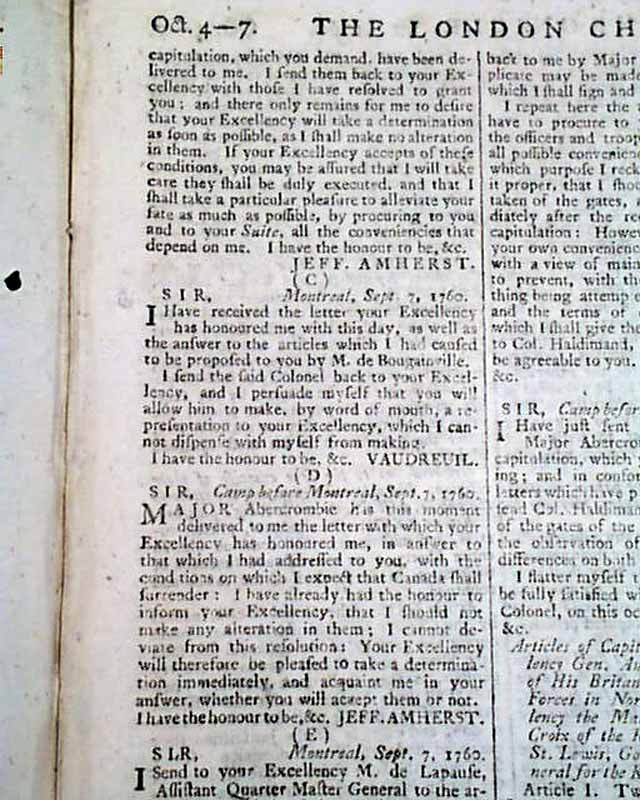 Oct. 4—7. THE LONDON CH
capitulation, which you demand, have been de-
livered to me. I ſend them back to your Ex-
cellency with thoſe I have reſolved to grant
you; and there only remains for me to deſire
that your Excellency will take a determination
as ſoon as poſſible, as I ſhall make no alteration
in them. If your Excellency accepts of theſe
conditions, you may be aſſured that I will take
care they ſhall be duly executed, and that I
ſhall take a particular pleaſure to alleviate your
fate as much as poſſible, by procuring to you
and to your Suite, all the conveniencies that
depend on me. I have the honour to be, &c.
JEFF. AMHERST.
(C)
SIR, Montreal, Sept. 7, 1760.
I Have received the letter your Excellency
has honoured me with this day, as well as
the anſwer to the articles which I had cauſed
to be propoſed to you by M. de Bougainville.
I ſend the ſaid Colonel back to your Excel-
lency, and I perſuade myſelf that you will
allow him to make, by word of mouth, a re-
preſentation to your Excellency, which I can-
not diſpenſe with myſelf from making.
I have the honour to be, &c. VAUDREUIL.
(D)
SIR, Camp before Montreal, Sept. 7, 1760.
MAJOR Abercrombie has this moment
delivered to me the letter with which your
Excellency has honoured me, in anſwer to
that which I had addreſſed to you, with the
conditions on which I expect that Canada ſhall
ſurrender: I have already had the honour to
inform your Excellency, that I ſhould not
make any alteration in them; I cannot de-
viate from this reſolution: Your Excellency
will therefore be pleaſed to take a determina-
tion immediately, and acquaint me in your
anſwer, whether you will accept them or not.
I have the honour to be, &c. JEFF. AMHERST.
(E)
SIR, Montreal, Sept. 7, 1760.
I Send to your Excellency M. de Lapauſe,
Aſſiſtant Quarter Maſter General to the ar-
back to me by Major
plicate may be made
which I ſhall ſign and
I repeat here the
have to procure to
the officers and troop
all poſſible convenien
which purpoſe I reck
it proper, that I ſhou
taken of the gates, a
diately after the re
capitulation: Howe
your own convenienc
with a view of main
to prevent, with th
thing being attempt
and the terms of
which I ſhall give th
to Col. Haldimand,
be agreeable to you.
&c.
SIR, Camp befor
I Have juſt ſent
Major Abercro
capitulation, which
ing; and in confor
letters which have p
tend Col. Haldiman
of the gates of the
the obſervation of
differences on both
I flatter myſelf
be fully ſatisfied wi
Colonel, on this oc
&c.
Articles of Capit
lency Gen. Am
of His Britan
Forces in Nor
lency the Ma
Croix of the
St. Lewis, Go
neral for the K
Article 1. Tw